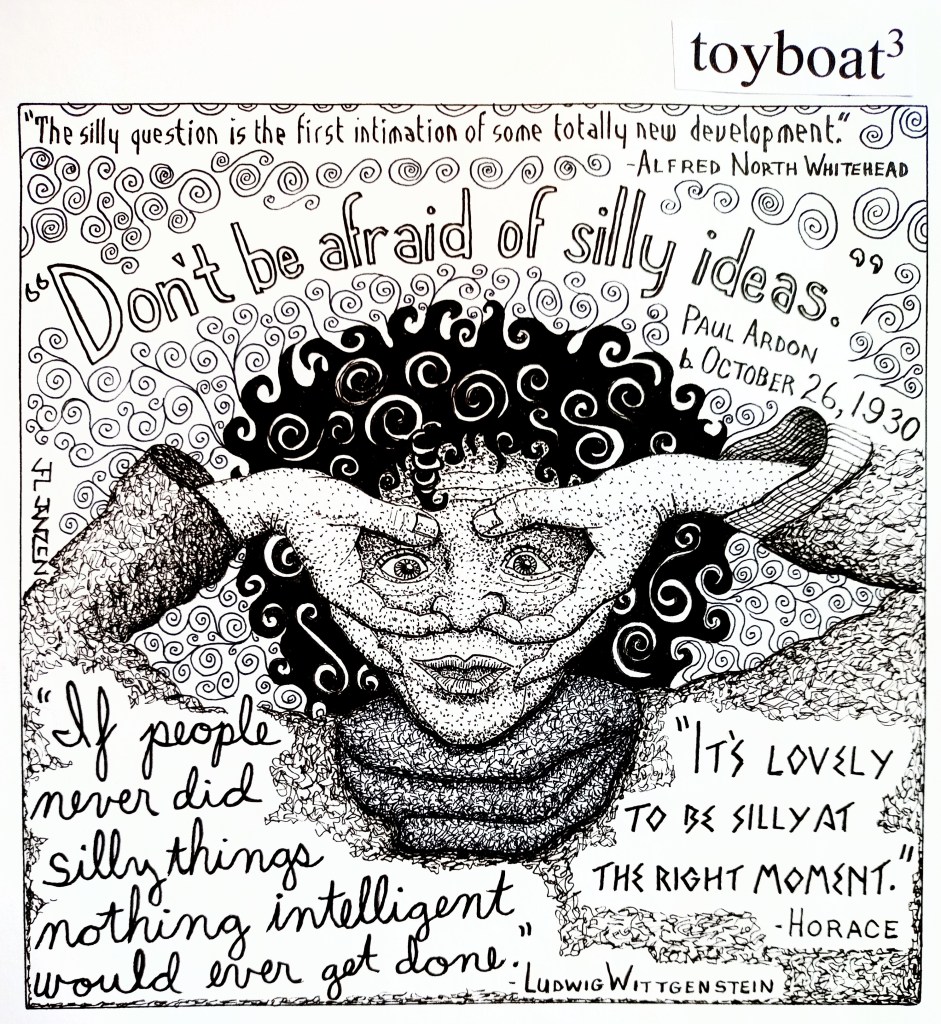 toyboat³
"The silly question is the first intimation of some totally new development."
-ALFRED NORTH WHITEHEAD
"Don't be afraid of silly ideas."
PAUL ARDON
b. OCTOBER 26, 1930
JL ANZEN
"If people
never did
silly things
nothing intelligent
would ever get done."
-LUDWIG WITTGENSTEIN
"IT'S LOVELY
TO BE SILLY AT
THE RIGHT MOMENT."
-HORACE